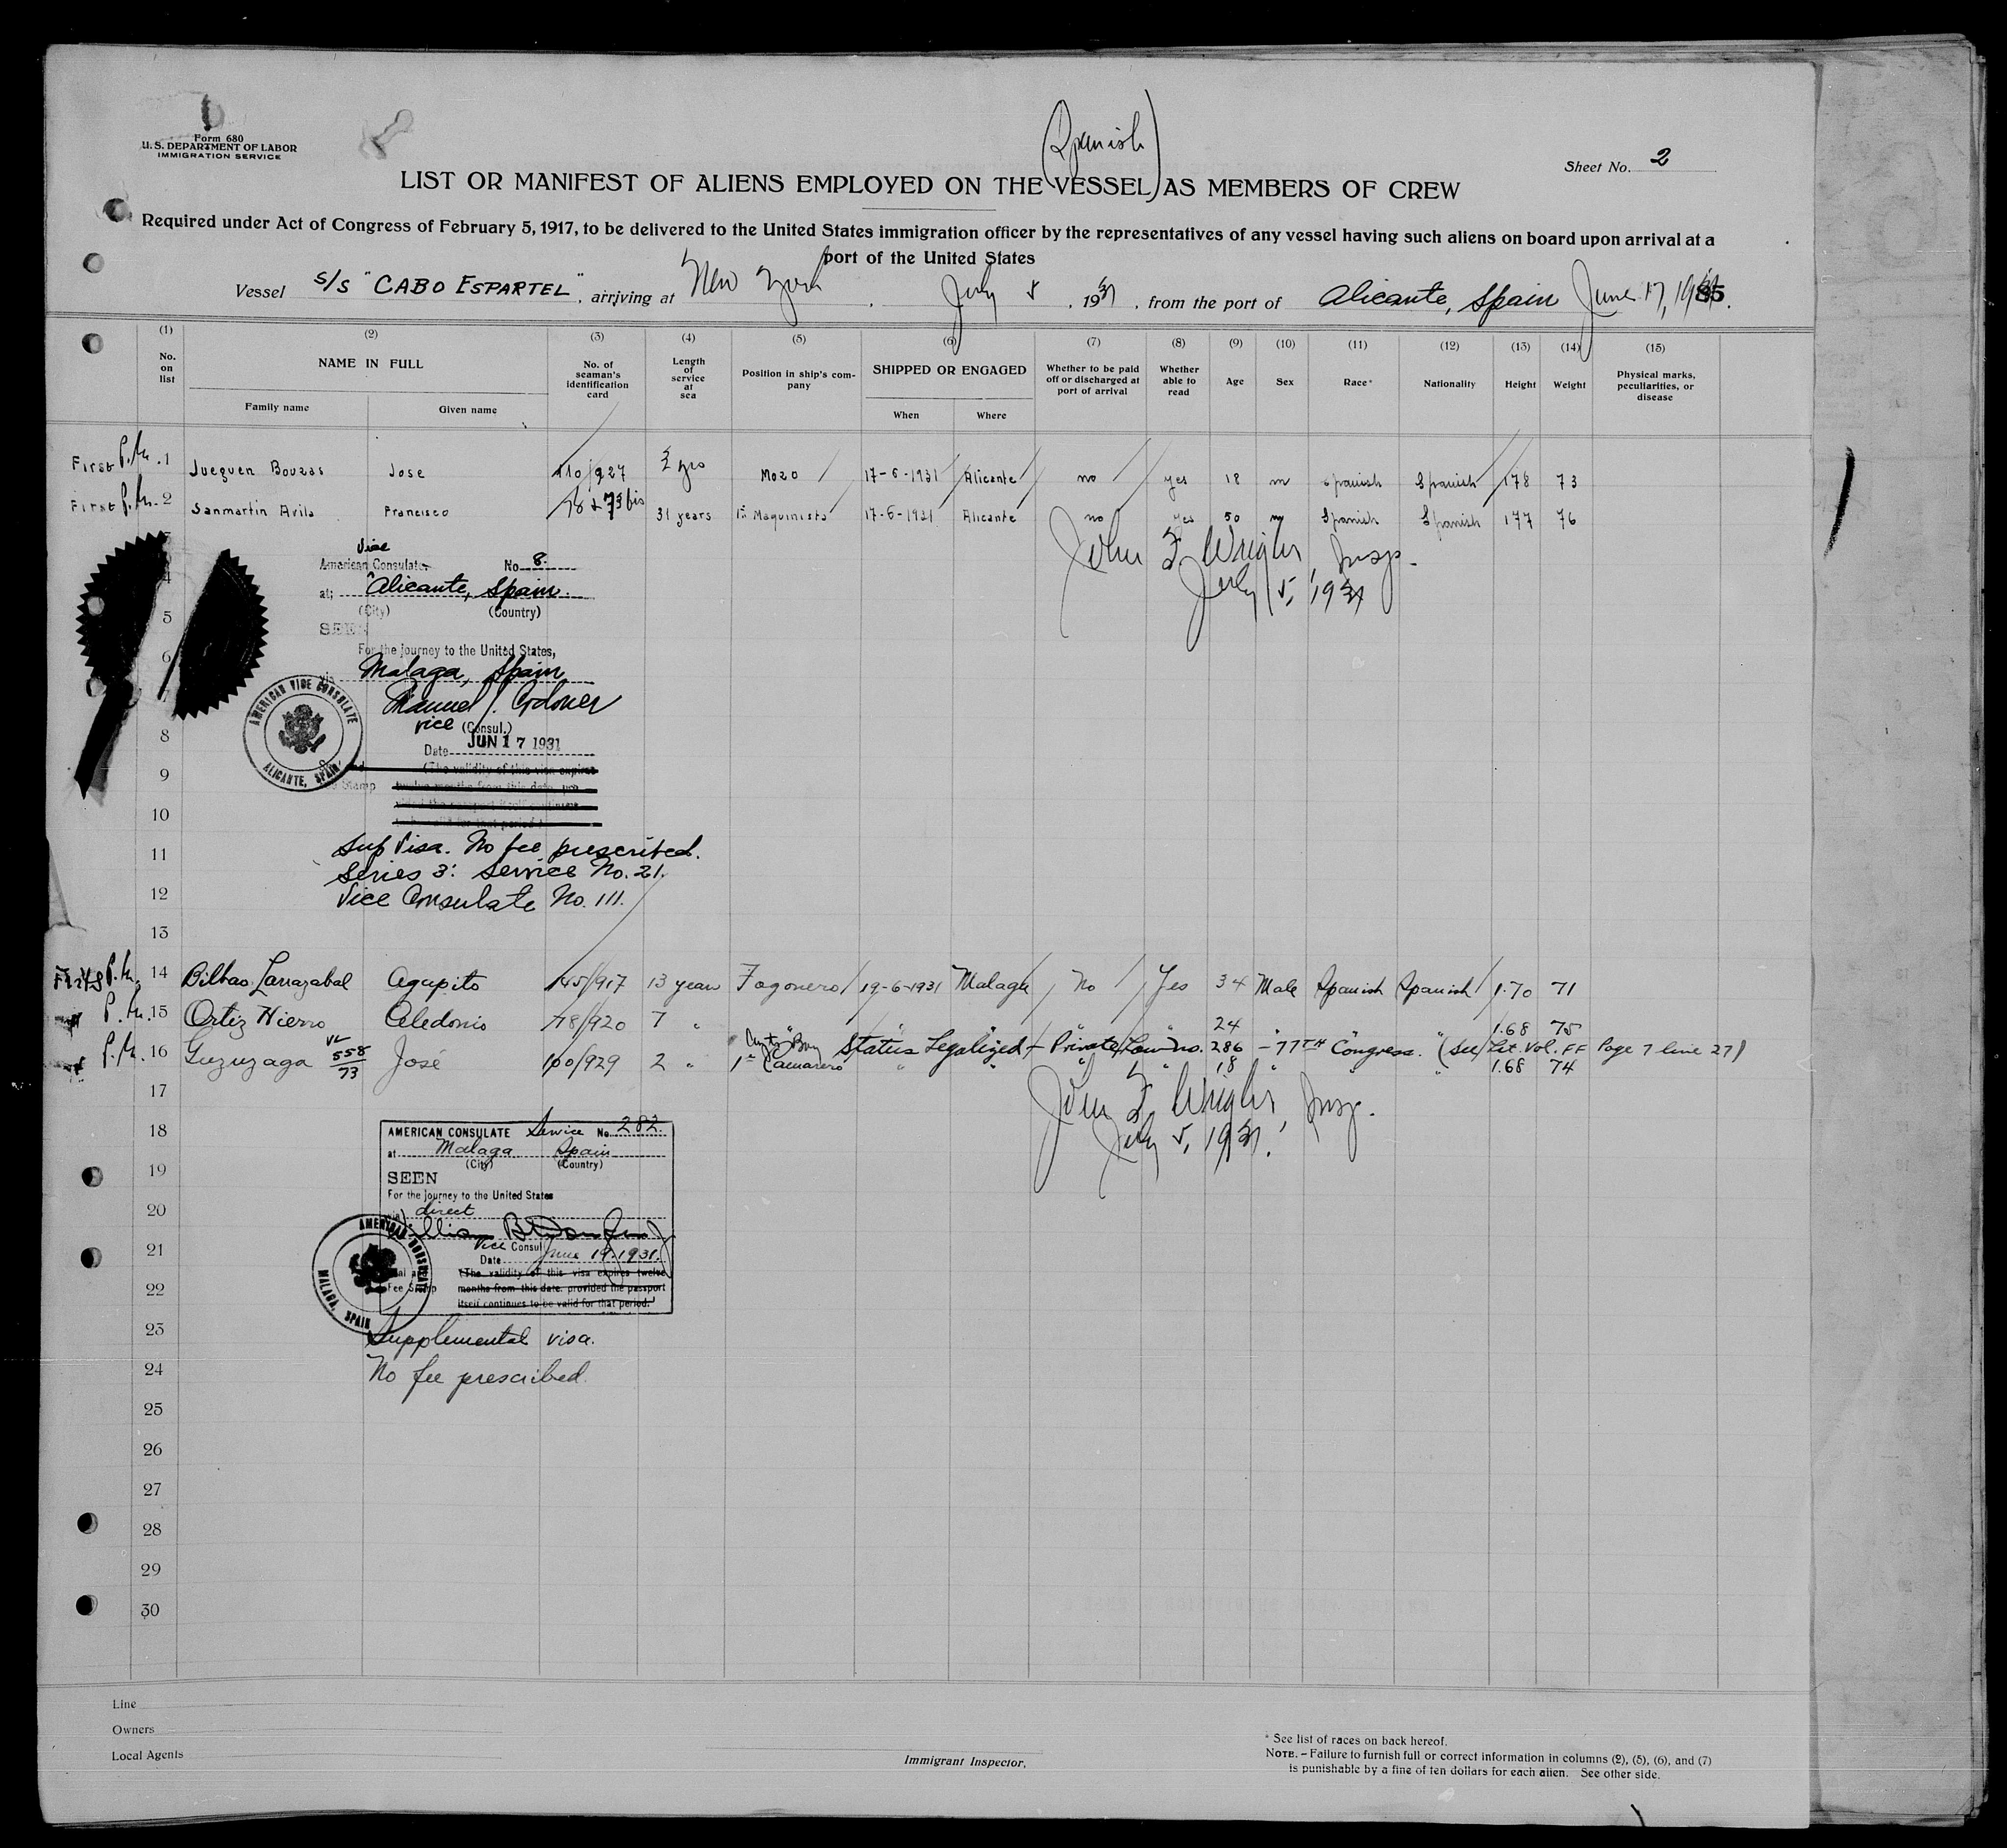 Form 680
U. S. DEPARTMENT OF LABOR
IMMIGRATION SERVICE
(Spanish)
Sheet No. 2
LIST OR MANIFEST OF ALIENS EMPLOYED ON THE VESSEL AS MEMBERS OF CREW
Required under Act of Congress of February 5, 1917, to be delivered to the United States immigration officer by the representatives of any vessel having such aliens on board upon arrival at a
port of the United States
Vessel S/S "CABO ESPARTEL", arriving at New York, July 5, 1931, from the port of Alicante, Spain June 17, 1931.
(1) (2) (3) (4) (5) (6) (7) (8) (9) (10) (11) (12) (13) (14) (15)
No. on list NAME IN FULL No. of seaman's identification card Length of service at sea Position in ship's company SHIPPED OR ENGAGED Whether to be paid off or discharged at port of arrival Whether able to read Age Sex Race* Nationality Height Weight Physical marks, peculiarities, or disease
Family name Given name When Where
First P.M. 1 Jueguen Bouzas Jose 110/927 yrs Mozo 17-6-1931 Alicante no yes 18 m Spanish Spanish 178 73
First P.M. 2 Sanmartin Avila Francisco 31 years 1º Maquinista 17-6-1931 Alicante no yes 50 m Spanish Spanish 177 76
John F. Wright, Insp.
July 5, 1931
Vice
American Consulate No. 8.
at: Alicante, Spain.
(City) (Country)
SEEN
For the journey to the United States,
via Malaga, Spain
Manuel J.
vice (Consul.)
Date JUN 17 1931
AMERICAN VICE CONSULATE
ALICANTE, SPAIN
(The validity of this visa expires
twelve months from this date, pro-
vided the passport itself continues
to be valid for that period.)
Sup Visa. No fee prescribed.
Series 3: Service No. 21.
Vice Consulate No. 111.
3
4
5
6
7
8
9
10
11
12
13
P.M. 14 Bilbao Larrazabal Agapito 145/917 13 years Fogonero 19-6-1931 Malaga No Yes 34 Male Spanish Spanish 1.70 71
P.M. 15 Ortiz Hierro Celedonio 78/920 7 " " " " " " 24 " " " 1.68 75
Status Legalized - Private Law no. 286 - 77TH Congress. (See Let. Vol. FF Page 7 line 27)
P.M. 16 Guzuzaga 558/73 José 100/929 2 " 1º Camarero " " " " 18 " " " 1.68 74
John F. Wright, Insp.
July 5, 1931.
17
18
19
20
21
22
23
24
25
26
27
28
29
30
AMERICAN CONSULATE Service No. 282.
at Malaga Spain
(City) (Country)
SEEN
For the journey to the United States
(via) direct
Vice Consul
Date June 19, 1931.
(The validity of this visa expires twelve
months from this date, provided the passport
itself continues to be valid for that period.)
Fee Stamp
AMERICAN CONSULATE
MALAGA, SPAIN
Supplemental visa.
No fee prescribed.
Line
Owners
Local Agents
Immigrant Inspector.
* See list of races on back hereof.
NOTE. – Failure to furnish full or correct information in columns (2), (5), (6), and (7)
is punishable by a fine of ten dollars for each alien. See other side.